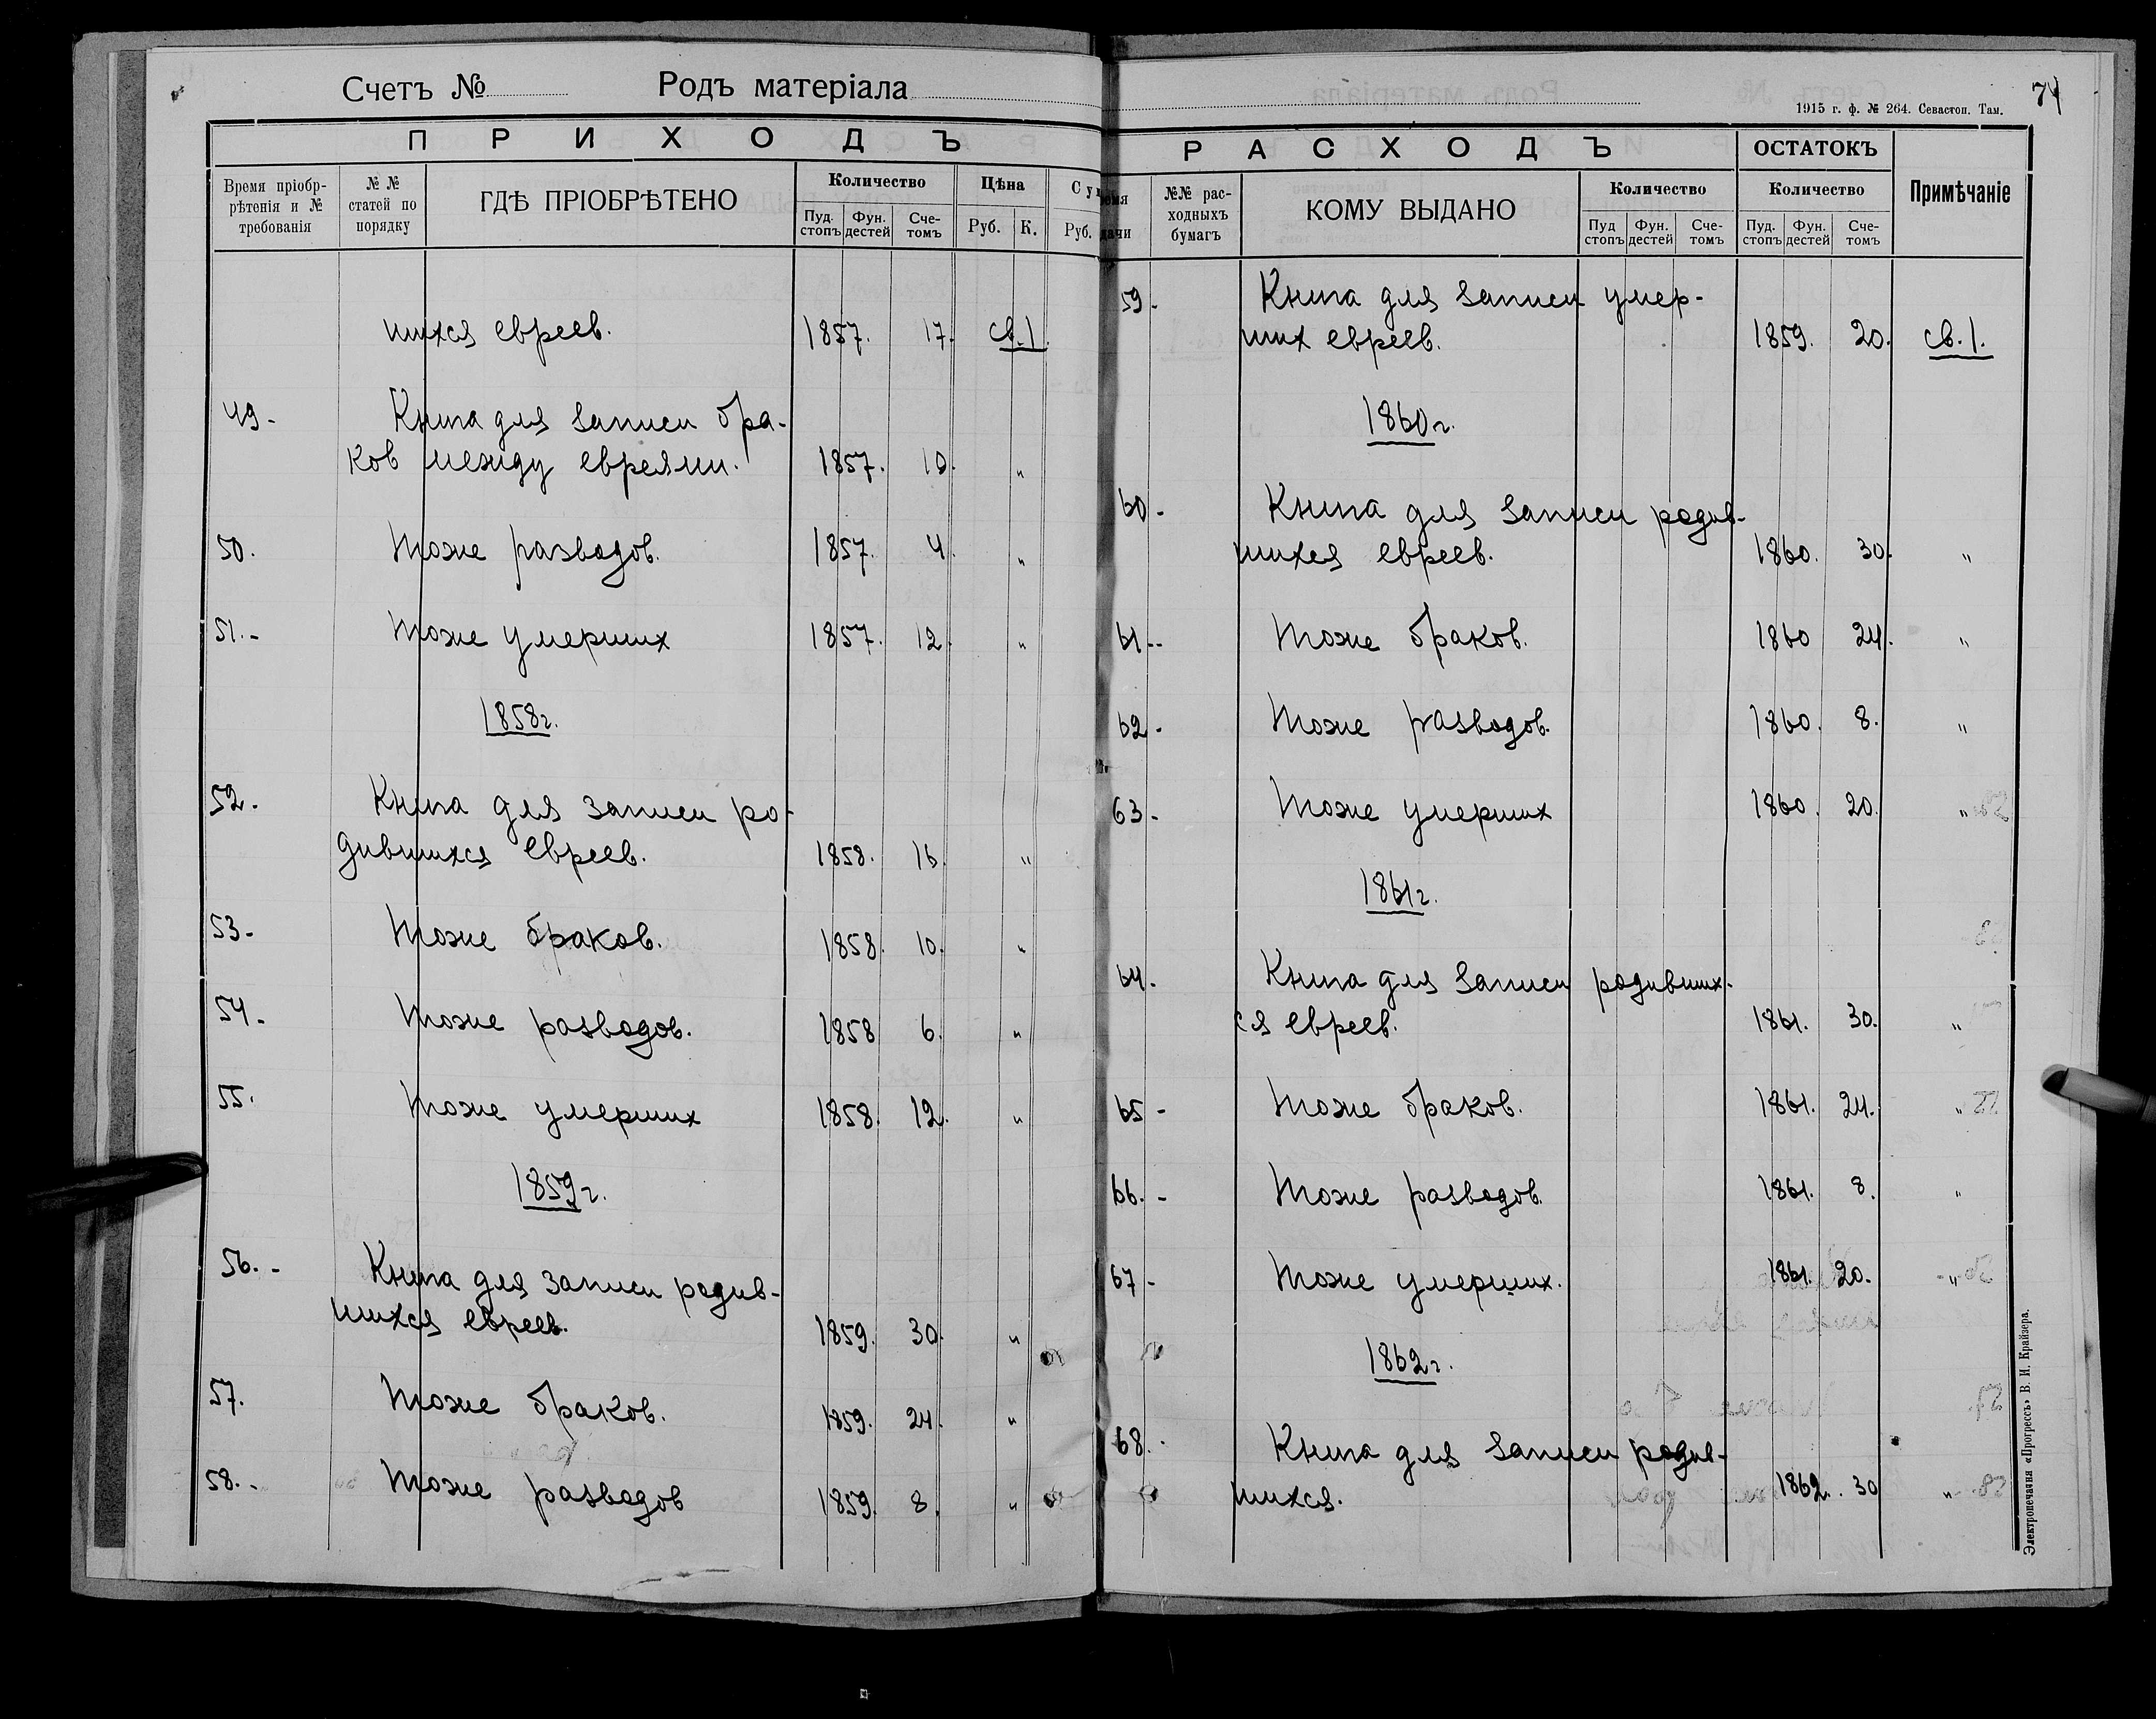 Счетъ № Родъ матеріала
П Р И Х О Д Ъ
Время пріобр-
рѣтенія и №
требованія
№ №
статей по
порядку
ГДѢ ПРІОБРѢТЕНО
Количество
Пуд.
стопъ
Фун.
дестей
Сче-
томъ
Цѣна
Руб. К.
Су
Руб.
шихся евреев. 1857. 17. св. 1.
49- Книга для записи бра-
ков между евреями. 1857. 10. "
50. Тоже разводов. 1857. 4. "
51.- Тоже умерших 1857. 12. "
1858г.
52. Книга для записи ро-
дившихся евреев. 1858. 16. "
53- Тоже браков. 1858. 10. "
54. Тоже разводов. 1858 6. "
55. Тоже умерших 1858. 12. "
1859г.
56.- Книга для записи родив-
шихся евреев. 1859. 30. "
57. Тоже браков. 1859. 24. "
58.- Тоже разводов 1859. 8. "
74
1915 г. ф. № 264. Севастоп. Там.
Р А С Х О Д Ъ
ОСТАТОКЪ
Примѣчаніе
емя
дачи
№№ рас-
ходныхъ
бумагъ
КОМУ ВЫДАНО
Количество
Пуд
стопъ
Фун.
дестей
Сче-
томъ
Количество
Пуд.
стопъ
Фун.
дестей
Сче-
томъ
59- Книга для записи умер-
ших евреев. 1859. 20. св. 1.
1860г.
60- Книга для записи родив-
шихся евреев. 1860. 30. "
61-- Тоже браков. 1860 24. "
62- Тоже разводов. 1860. 8. "
63- Тоже умерших 1860. 20. "
1861г.
64. Книга для записи родивших-
ся евреев. 1861. 30. "
65- Тоже браков. 1861. 24. "
66.- Тоже разводов. 1861. 8. "
67- Тоже умерших. 1861. 20. "
1862г.
68. Книга для записи родив-
шихся. 1862. 30 "
Электропечатня «Прогрессъ» В. И. Крайзера.